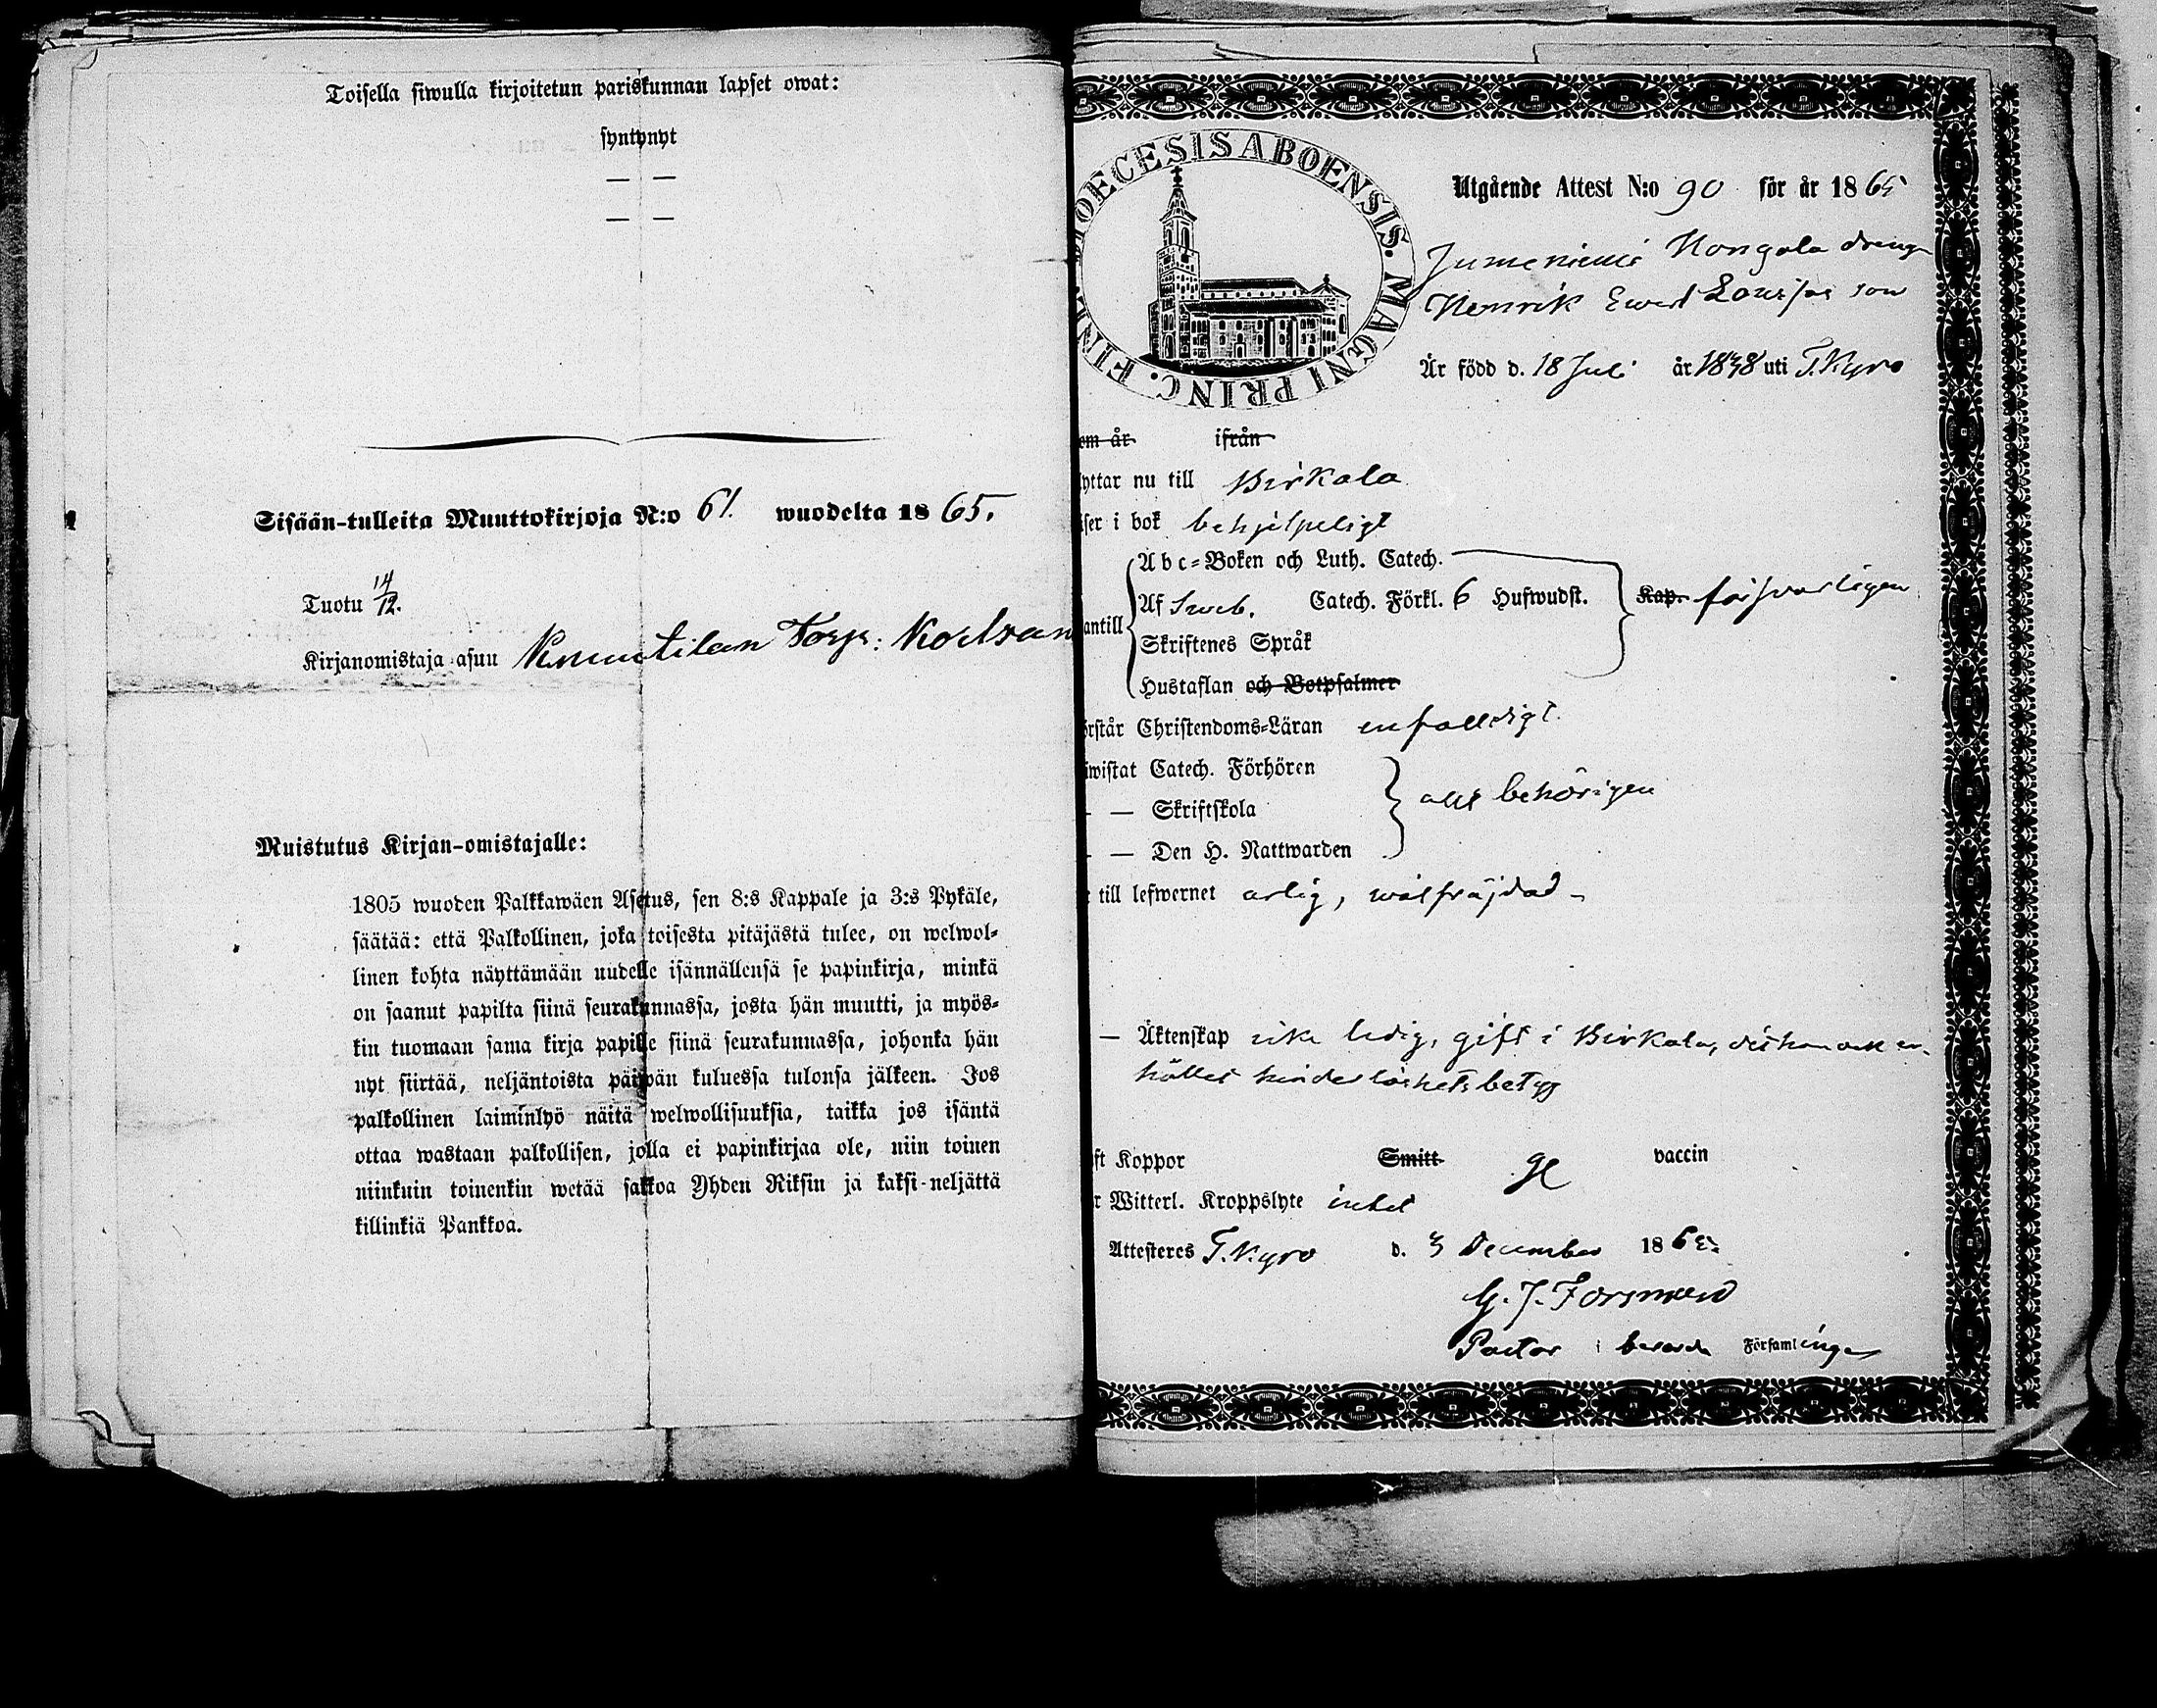 Toisella siwulla kirjoitetun pariskunnan lapset owat:
syntynyt
— —
— —
Sisään-tulleita Muuttokirjoja N:o 61. wuodelta 1865.
Tuotu 14/12.
Kirjanomistaja asuu Knuutilan Torp:
Muistutus Kirjan-omistajalle:
1805 wuoden Palkkawäen Asetus, sen 8:s Kappale ja 3:s Pykäle,
säätää: että Palkollinen, joka toisesta pitäjästä tulee, on welwol-
linen kohta näyttämään uudelle isännällensä se papinkirja, minkä
on saanut papilta siinä seurakunnassa, josta hän muutti, ja myös-
kin tuomaan sama kirja papille siinä seurakunnassa, johonka hän
nyt siirtää, neljäntoista päiwän kuluessa tulonsa jälkeen. Jos
palkollinen laiminlyö näitä welwollisuuksia, taikka jos isäntä
ottaa wastaan palkollisen, jolla ei papinkirjaa ole, niin toinen
niinkuin toinenkin wetää sakkoa Yhden Riksin ja kaksi-neljättä
killinkiä Pankkoa.
DIOECESIS ABOENSIS. MAGNI PRINC. FINL
Utgående Attest N:o 90 för år 1865
Jumeniemi Kongala dreng
Henrik Ewert son
Är född d. 18 Juli år 1838 uti T.Kyro
om år ifrån
yttar nu till Birkala
äser i bok behjelpeligt
antill
Abc-Boken och Luth. Catech.
Af Sweb. Catech. Förkl. 6 Hufwudst. Kap. försvarligen
Skriftenes Språk
Hustaflan och Botpsalmer
örstår Christendoms-Läran enfalldigt.
iwistat Catech. Förhören
— — Skriftskola all behörigen
— — Den H. Nattwarden
till lefwernet ärlig, wälfräjdad -
— Äktenskap icke ledig, gift i Birkala, dit han ock er-
hållet hinderlöshetsbetyg
ft Koppor Smitt vaccin
r Witterl. Kroppslyte intet
Attesteres T.Kyro d. 3 December 1865.
G. J. Forsman
Pastor i berörda Församlingen